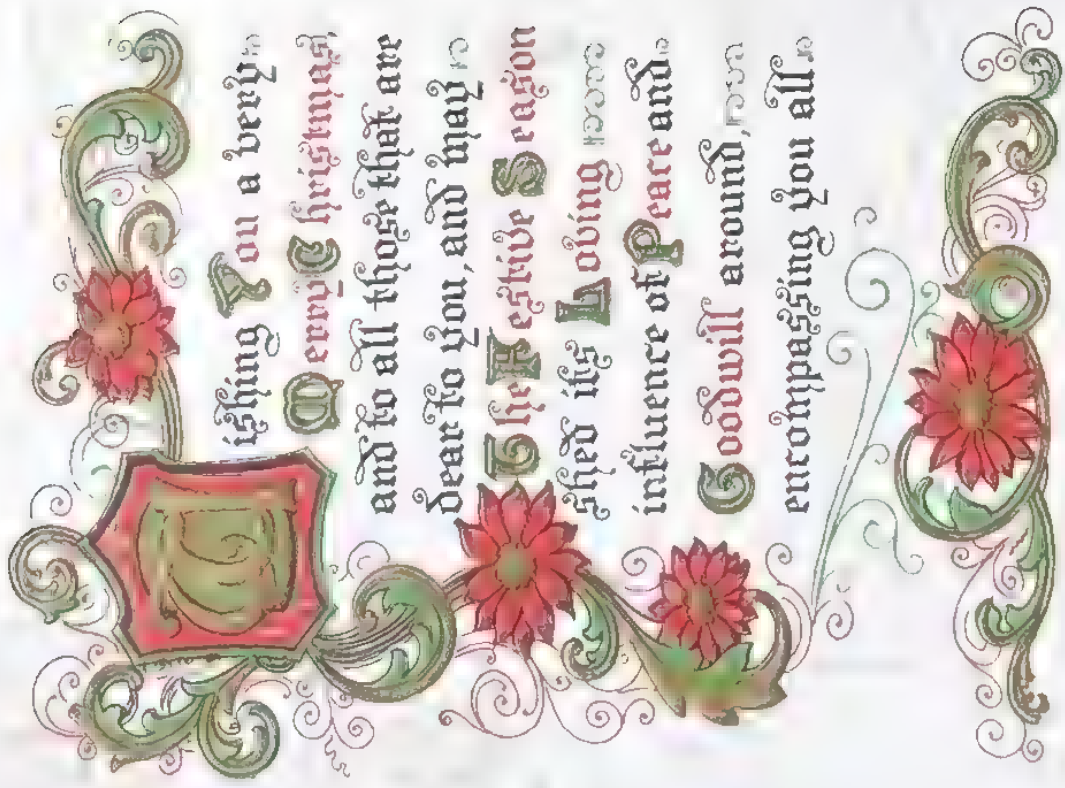 Wishing You a very
Merry Christmas,
and to all those that are
dear to you, and may
The Festive Season
shed its Loving
influence of Peace and
Goodwill around,
encompassing you all.